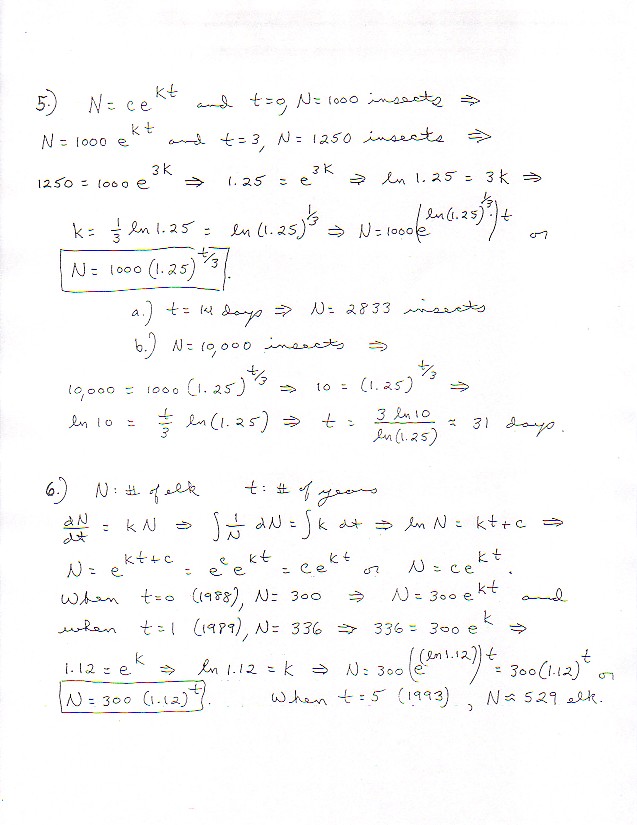 5.) N = ce^{kt} and t=0, N=1000 insects ⇒
N = 1000 e^{kt} and t=3, N = 1250 insects ⇒
1250 = 1000 e^{3k} ⇒ 1.25 = e^{3k} ⇒ ln 1.25 = 3k ⇒
k = 1/3 ln 1.25 = ln (1.25)^{1/3} ⇒ N = 1000(e^{ln(1.25)^{1/3}})^t or
N = 1000 (1.25)^{t/3}.
a.) t = 14 days ⇒ N = 2833 insects
b.) N = 10,000 insects ⇒
10,000 = 1000 (1.25)^{t/3} ⇒ 10 = (1.25)^{t/3} ⇒
ln 10 = t/3 ln(1.25) ⇒ t = 3 ln 10 / ln(1.25) ≈ 31 days.
6.) N: # of elk t: # of years
dN/dt = kN ⇒ ∫ 1/N dN = ∫ k dt ⇒ ln N = kt+c ⇒
N = e^{kt+c} = e^c e^{kt} = ce^{kt} or N = ce^{kt}.
When t=0 (1988), N = 300 ⇒ N = 300 e^{kt} and
when t=1 (1989), N = 336 ⇒ 336 = 300 e^k ⇒
1.12 = e^k ⇒ ln 1.12 = k ⇒ N = 300 (e^{(ln 1.12)})^t = 300 (1.12)^t or
N = 300 (1.12)^t. When t = 5 (1993), N ≈ 529 elk.